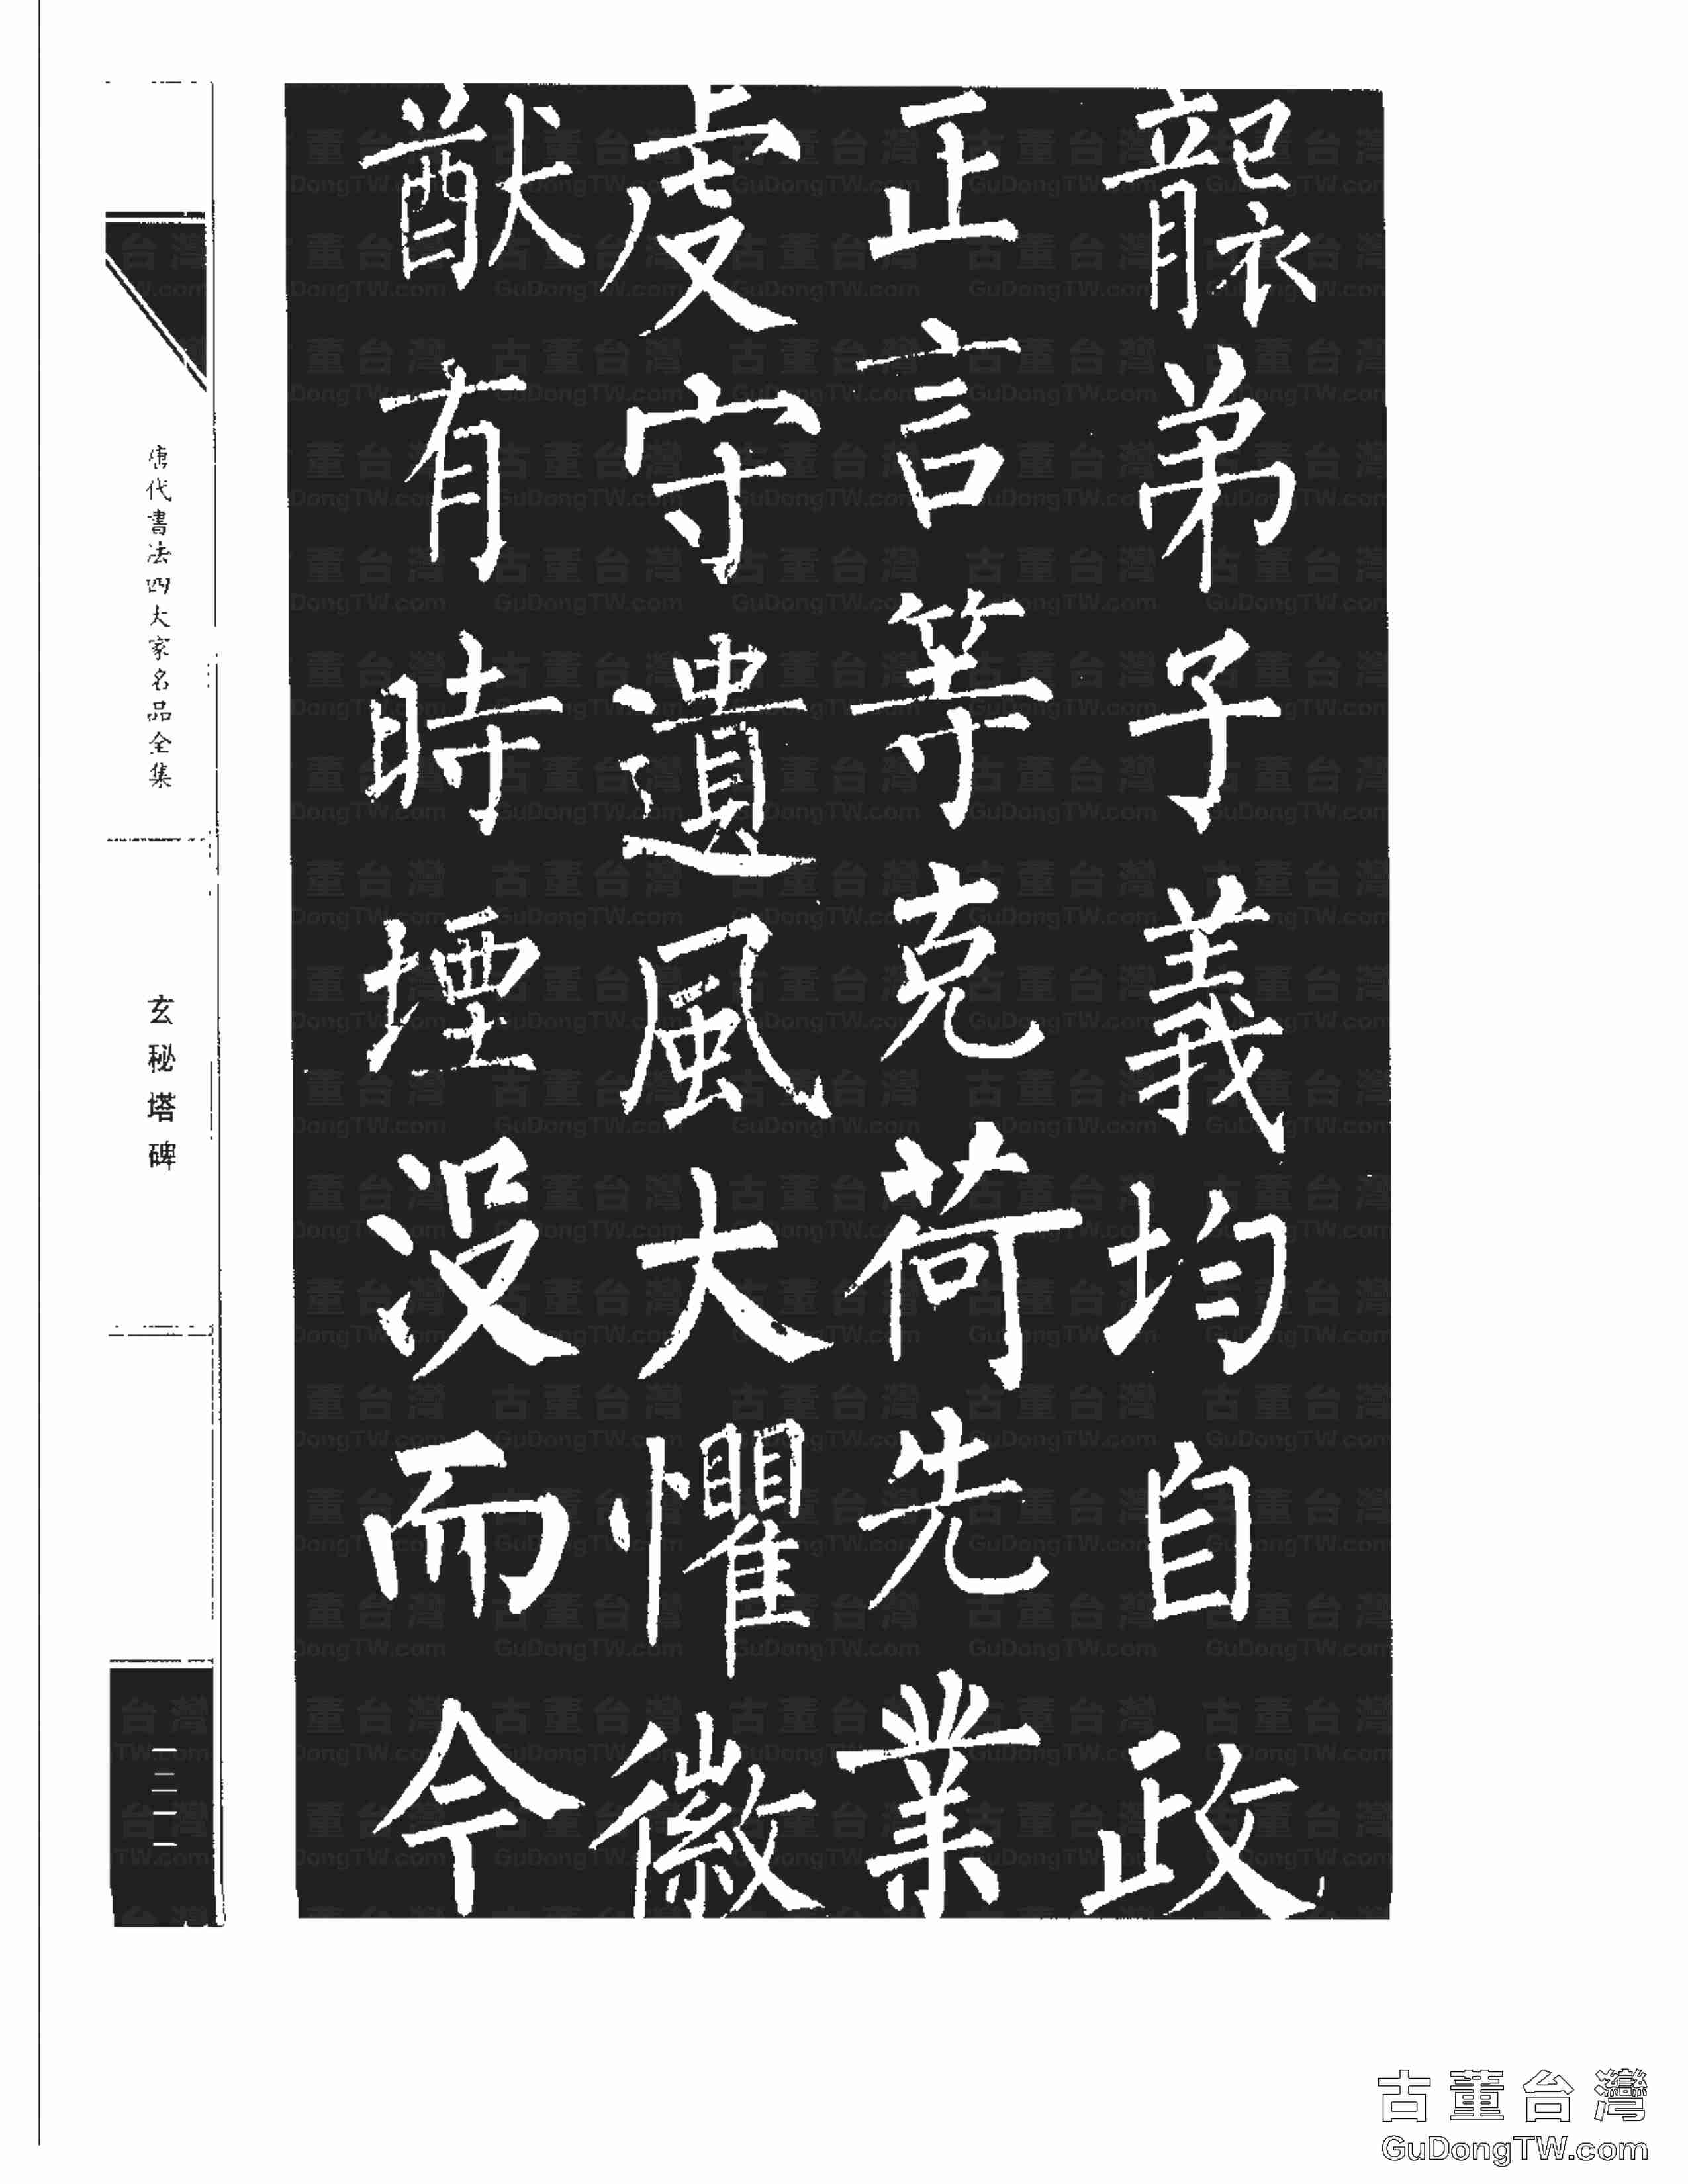 襲弟子義均自政
正言等克荷先業
虔守遺風大懼徽
猷有時堙沒而今
唐代書法四大家名品全集
玄秘塔碑
古董台灣
GuDongTW.com